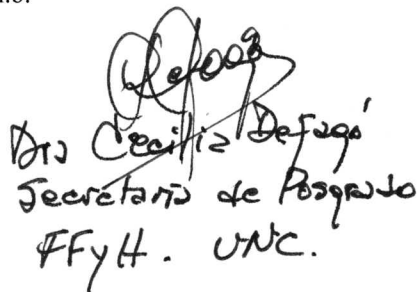 Dra Cecilia Defagó
Secretaria de Posgrado
FFyH. UNC.